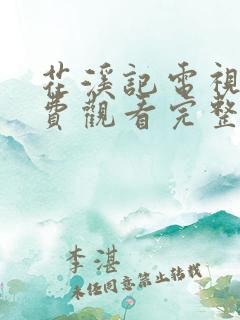 茌溪記電視
費觀看完整
李湛
未经同意禁止转载